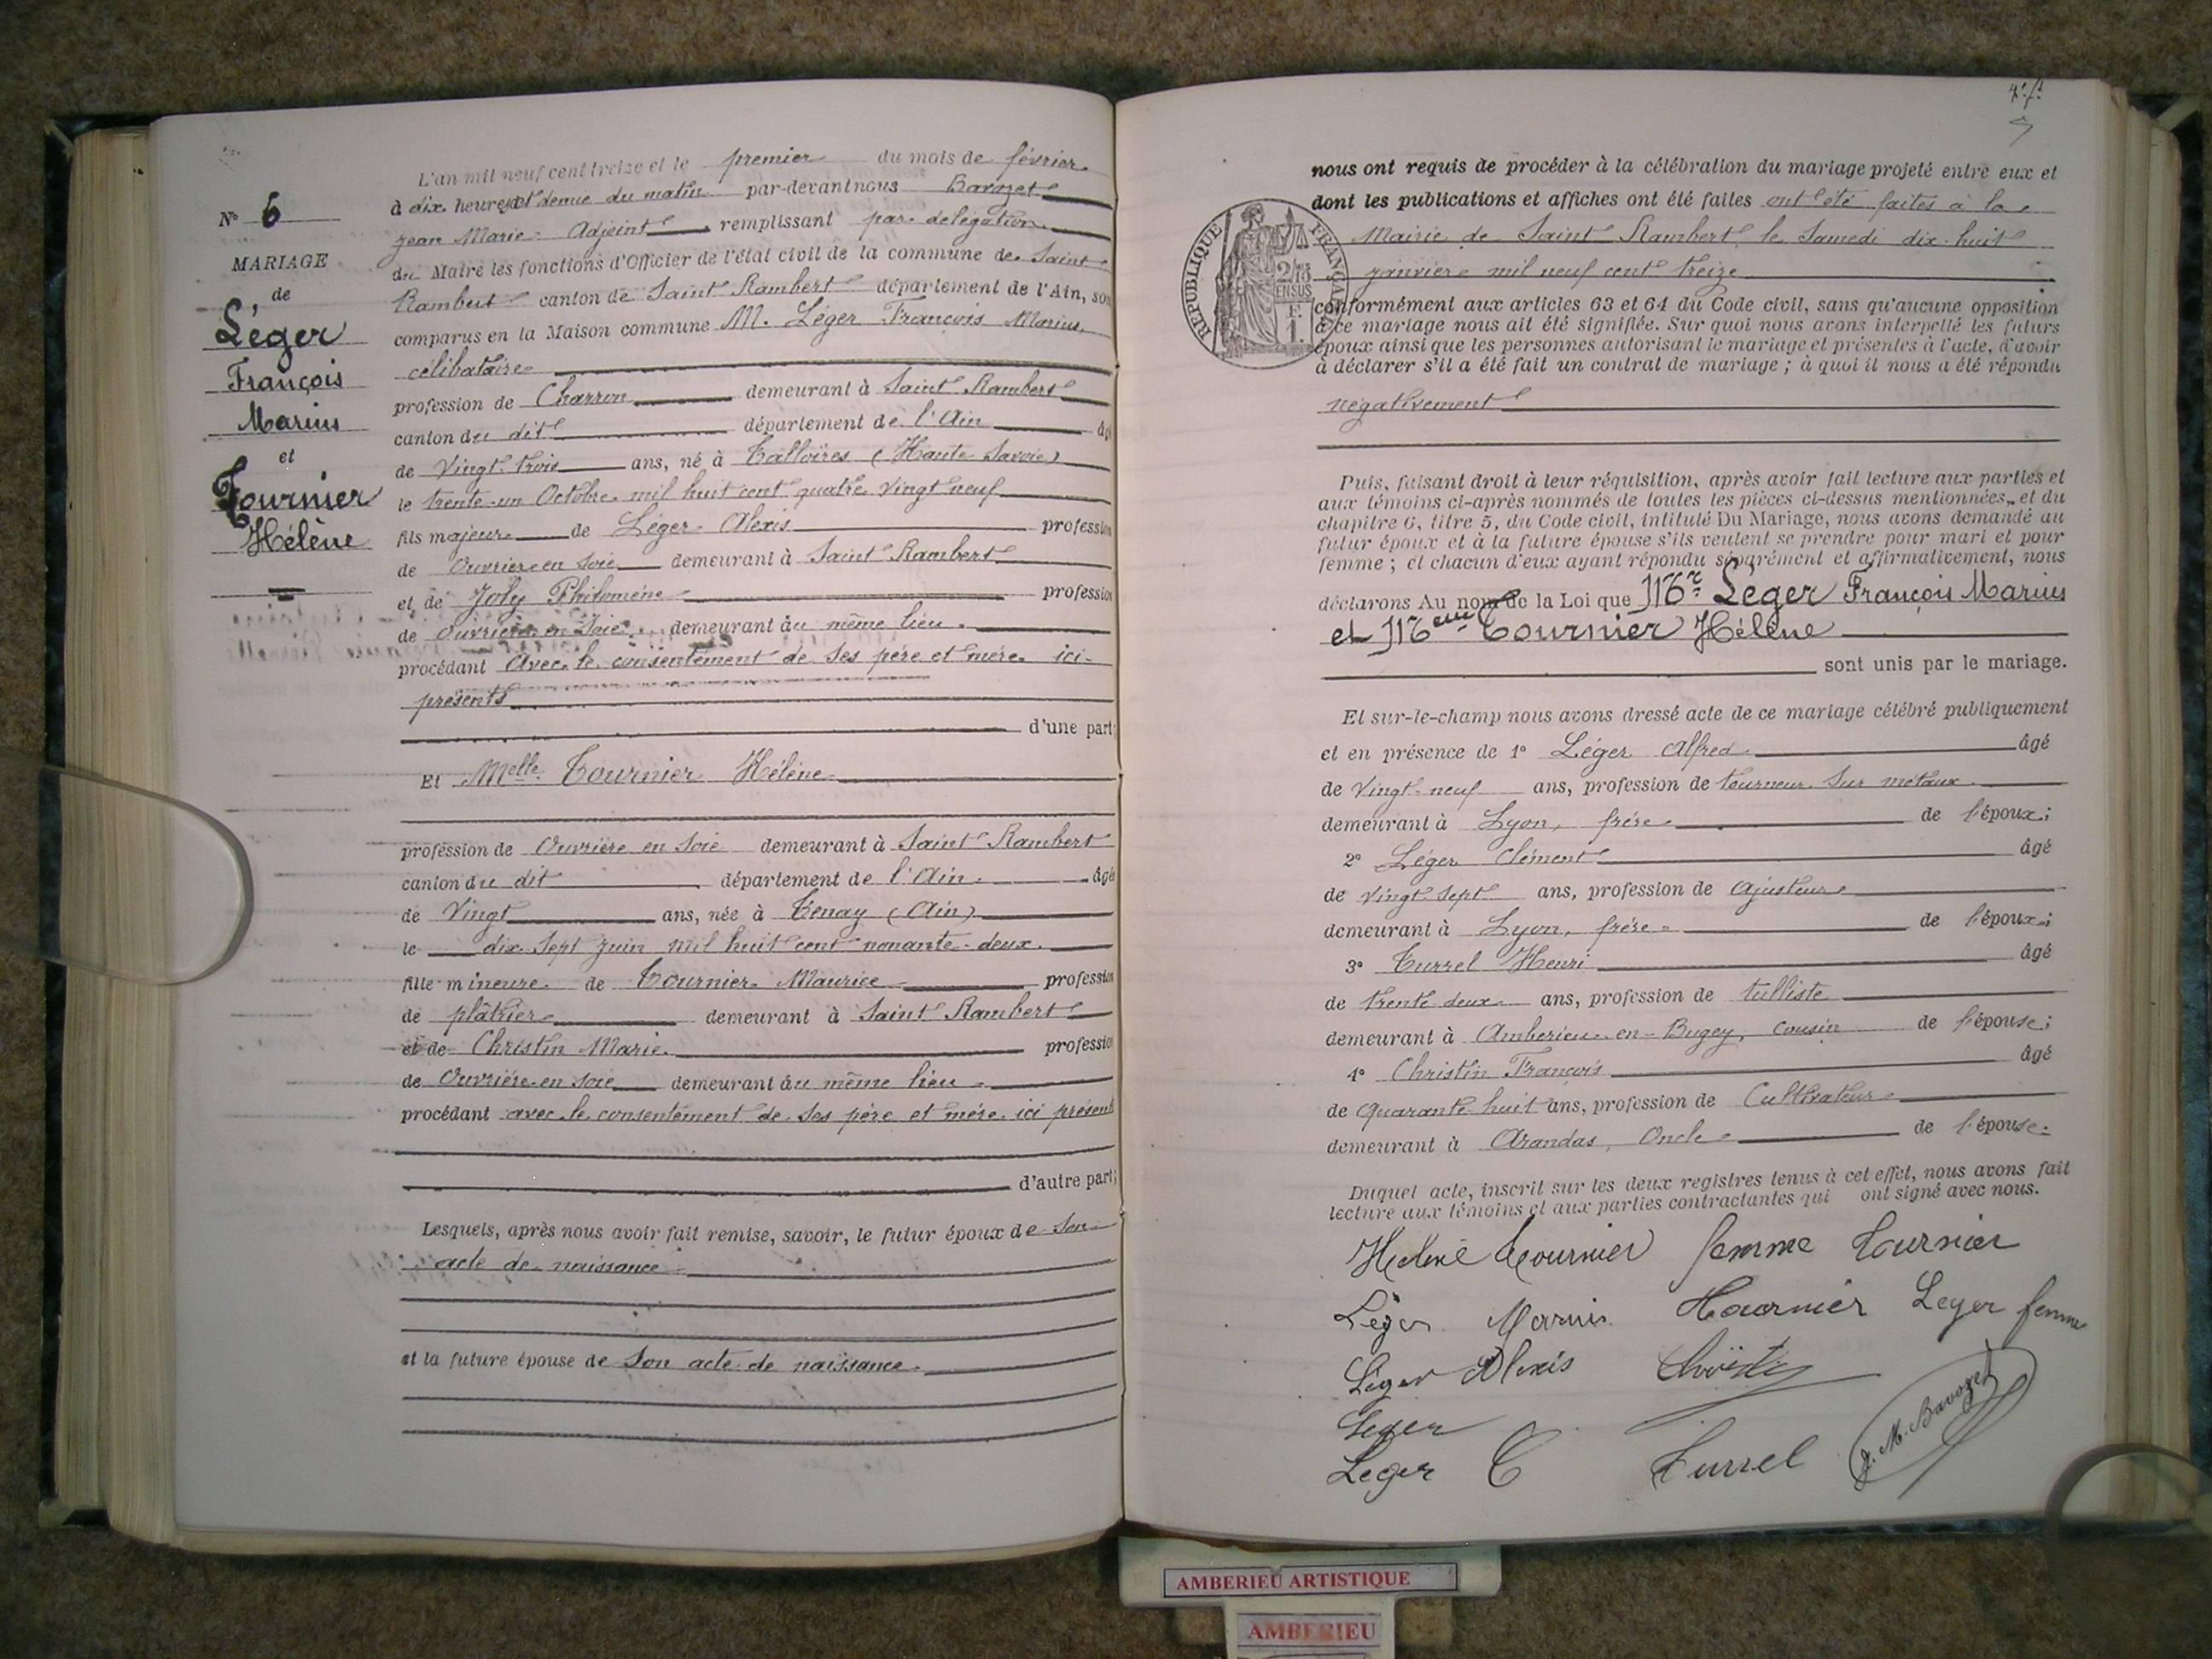 N° 6
MARIAGE
de
Léger
François
Marius
et
Tournier
Hélène
L'an mil neuf cent treize et le premier du mois de février
à dix heures et demie du matin par-devant nous Bavozet
Jean Marie Adjoint remplissant par délégation
du Maire les fonctions d'Officier de l'état civil de la commune de Saint
Rambert canton de Saint Rambert département de l'Ain, son
comparus en la Maison commune M. Léger François Marius,
célibataire
profession de Charron demeurant à Saint Rambert
canton du dit département de l'Ain âg
de Vingt-trois ans, né à Talloires (Haute Savoie)
le trente-un Octobre mil huit cent quatre vingt neuf
fils majeur de Léger Alexis profession
de Ouvrier en soie demeurant à Saint Rambert
et de Joly Philomène profession
de Ouvrière en Soie demeurant au même lieu
procédant avec le consentement de ses père et mère ici-
présents
d'une part;
Et Melle Tournier Hélène
profession de Ouvrière en soie demeurant à Saint Rambert
canton du dit département de l'Ain âgé
de Vingt ans, née à Tenay (Ain)
le dix-sept juin mil huit cent nonante-deux
fille mineure de Tournier Maurice profession
de plâtrier demeurant à Saint Rambert
et de Christin Marie profession
de Ouvrière en soie demeurant au même lieu
procédant avec le consentement de ses père et mère ici présent
d'autre part;
Lesquels, après nous avoir fait remise, savoir, le futur époux de son
acte de naissance
et la future épouse de son acte de naissance
nous ont requis de procéder à la célébration du mariage projeté entre eux et
dont les publications et affiches ont été faites ont été faites à la
Mairie de Saint Rambert le Samedi dix-huit
janvier mil neuf cent treize
REPUBLIQUE FRANÇAISE
conformément aux articles 63 et 64 du Code civil, sans qu'aucune opposition
à ce mariage nous ait été signifiée. Sur quoi nous avons interpellé les futurs
époux ainsi que les personnes autorisant le mariage et présentes à l'acte, d'avoir
à déclarer s'il a été fait un contrat de mariage ; à quoi il nous a été répondu
négativement
Puis, faisant droit à leur réquisition, après avoir fait lecture aux parties et
aux témoins ci-après nommés de toutes les pièces ci-dessus mentionnées, et du
chapitre 6, titre 5, du Code civil, intitulé Du Mariage, nous avons demandé au
futur époux et à la future épouse s'ils veulent se prendre pour mari et pour
femme ; et chacun d'eux ayant répondu séparément et affirmativement, nous
déclarons Au nom de la Loi que Mr Léger François Marius
et Melle Tournier Hélène
sont unis par le mariage.
Et sur-le-champ nous avons dressé acte de ce mariage célébré publiquement
et en présence de 1° Léger Alfred âgé
de Vingt-neuf ans, profession de tourneur sur métaux
demeurant à Lyon, frère de l'époux;
2° Léger Clément âgé
de vingt-sept ans, profession de ajusteur
demeurant à Lyon, frère de l'époux;
3° Turrel Henri âgé
de trente deux ans, profession de tulliste
demeurant à Amberieu-en-Bugey, cousin de l'épouse;
4° Christin François âgé
de quarante-huit ans, profession de Cultivateur
demeurant à Arandas, Oncle de l'épouse.
Duquel acte, inscrit sur les deux registres tenus à cet effet, nous avons fait
lecture aux témoins et aux parties contractantes qui ont signé avec nous.
Hélène Tournier femme Tournier
Léger Marius Tournier Leger femme
Léger Alexis Christin
Leger
Leger C Turrel J. M. Bavozet
AMBERIEU ARTISTIQUE
AMBERIEU